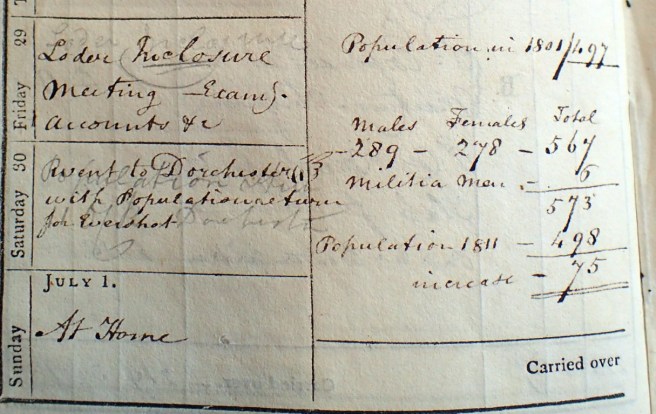 29
Friday
Loder Inclosure
Meeting – Examg.
accounts &c
30
Saturday
went to Dorchester
with Population return
for Evershot
JULY 1.
Sunday
At Home
Population in 1801 / 497
Males Females Total
289 – 278 – 567
Militia Men – 6
573
Population 1811 – 498
increase – 75
Carried over